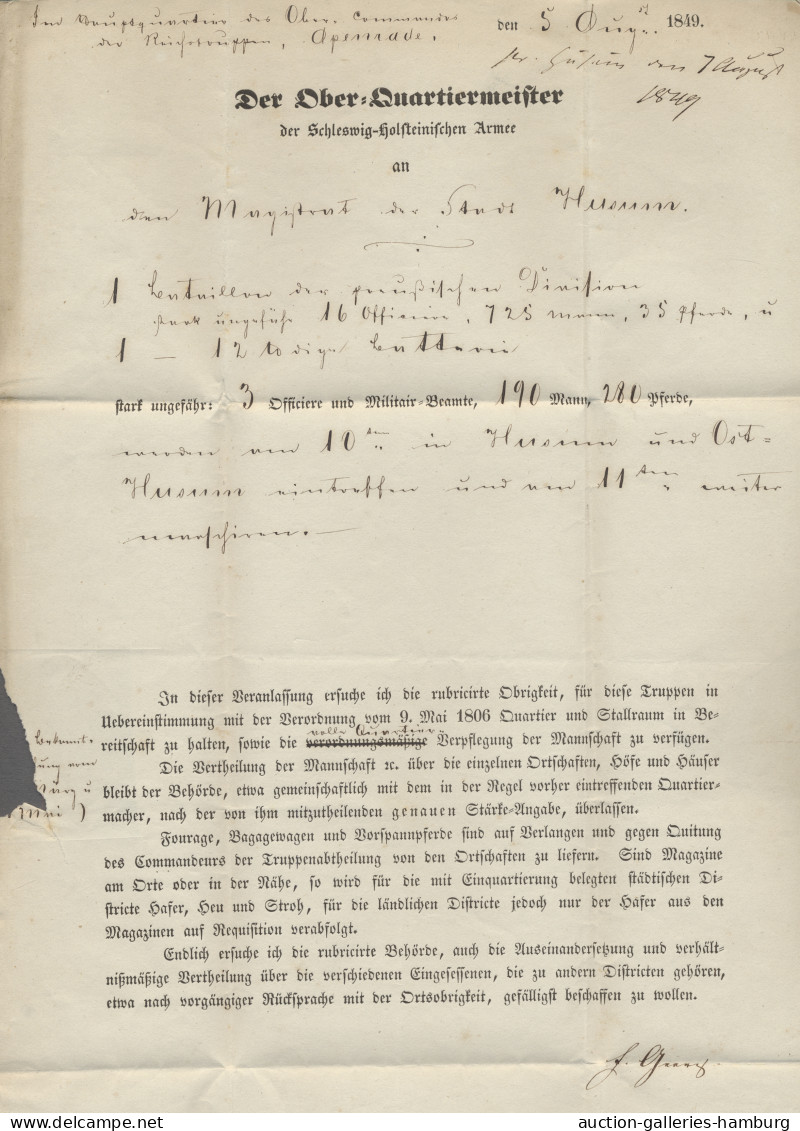 Im Hauptquartier des Ober-Commandos
der Reichstruppen, Apenrade, den 5 Aug. 1849.
pr. Husum den 7 August
1849
Der Ober-Quartiermeister
der Schleswig-Holsteinischen Armee
an
den Magistrat der Stadt Husum.
1 Bataillon der preußischen Division
stark ungefähr 16 Officiere, 725 Mann, 35 Pferde, u
1 — 12 ℔dige Batterie
stark ungefähr: 3 Officiere und Militair-Beamte, 190 Mann, 280 Pferde,
werden am 10ten in Husum und Ost-
Husum eintreffen und am 11ten weiter
marschiren.—
In dieser Veranlassung ersuche ich die rubricirte Obrigkeit, für diese Truppen in
Uebereinstimmung mit der Verordnung vom 9. Mai 1806 Quartier und Stallraum in Be-
volle Quartier
reitschaft zu halten, sowie die verordnungsmäßige Verpflegung der Mannschaft zu verfügen.
Bekannt-
ung vom
März u
Mai)
Die Vertheilung der Mannschaft ꝛc. über die einzelnen Ortschaften, Höfe und Häuser
bleibt der Behörde, etwa gemeinschaftlich mit dem in der Regel vorher eintreffenden Quartier-
macher, nach der von ihm mitzutheilenden genauen Stärke-Angabe, überlassen.
Fourage, Bagagewagen und Vorspannpferde sind auf Verlangen und gegen Quitung
des Commandeurs der Truppenabtheilung von den Ortschaften zu liefern. Sind Magazine
am Orte oder in der Nähe, so wird für die mit Einquartierung belegten städtischen Di-
stricte Hafer, Heu und Stroh, für die ländlichen Districte jedoch nur der Hafer aus den
Magazinen auf Requisition verabfolgt.
Endlich ersuche ich die rubricirte Behörde, auch die Auseinandersetzung und verhält-
nißmäßige Vertheilung über die verschiedenen Eingesessenen, die zu andern Districten gehören,
etwa nach vorgängiger Rücksprache mit der Ortsobrigkeit, gefälligst beschaffen zu wollen.
auction-galleries-hamburg